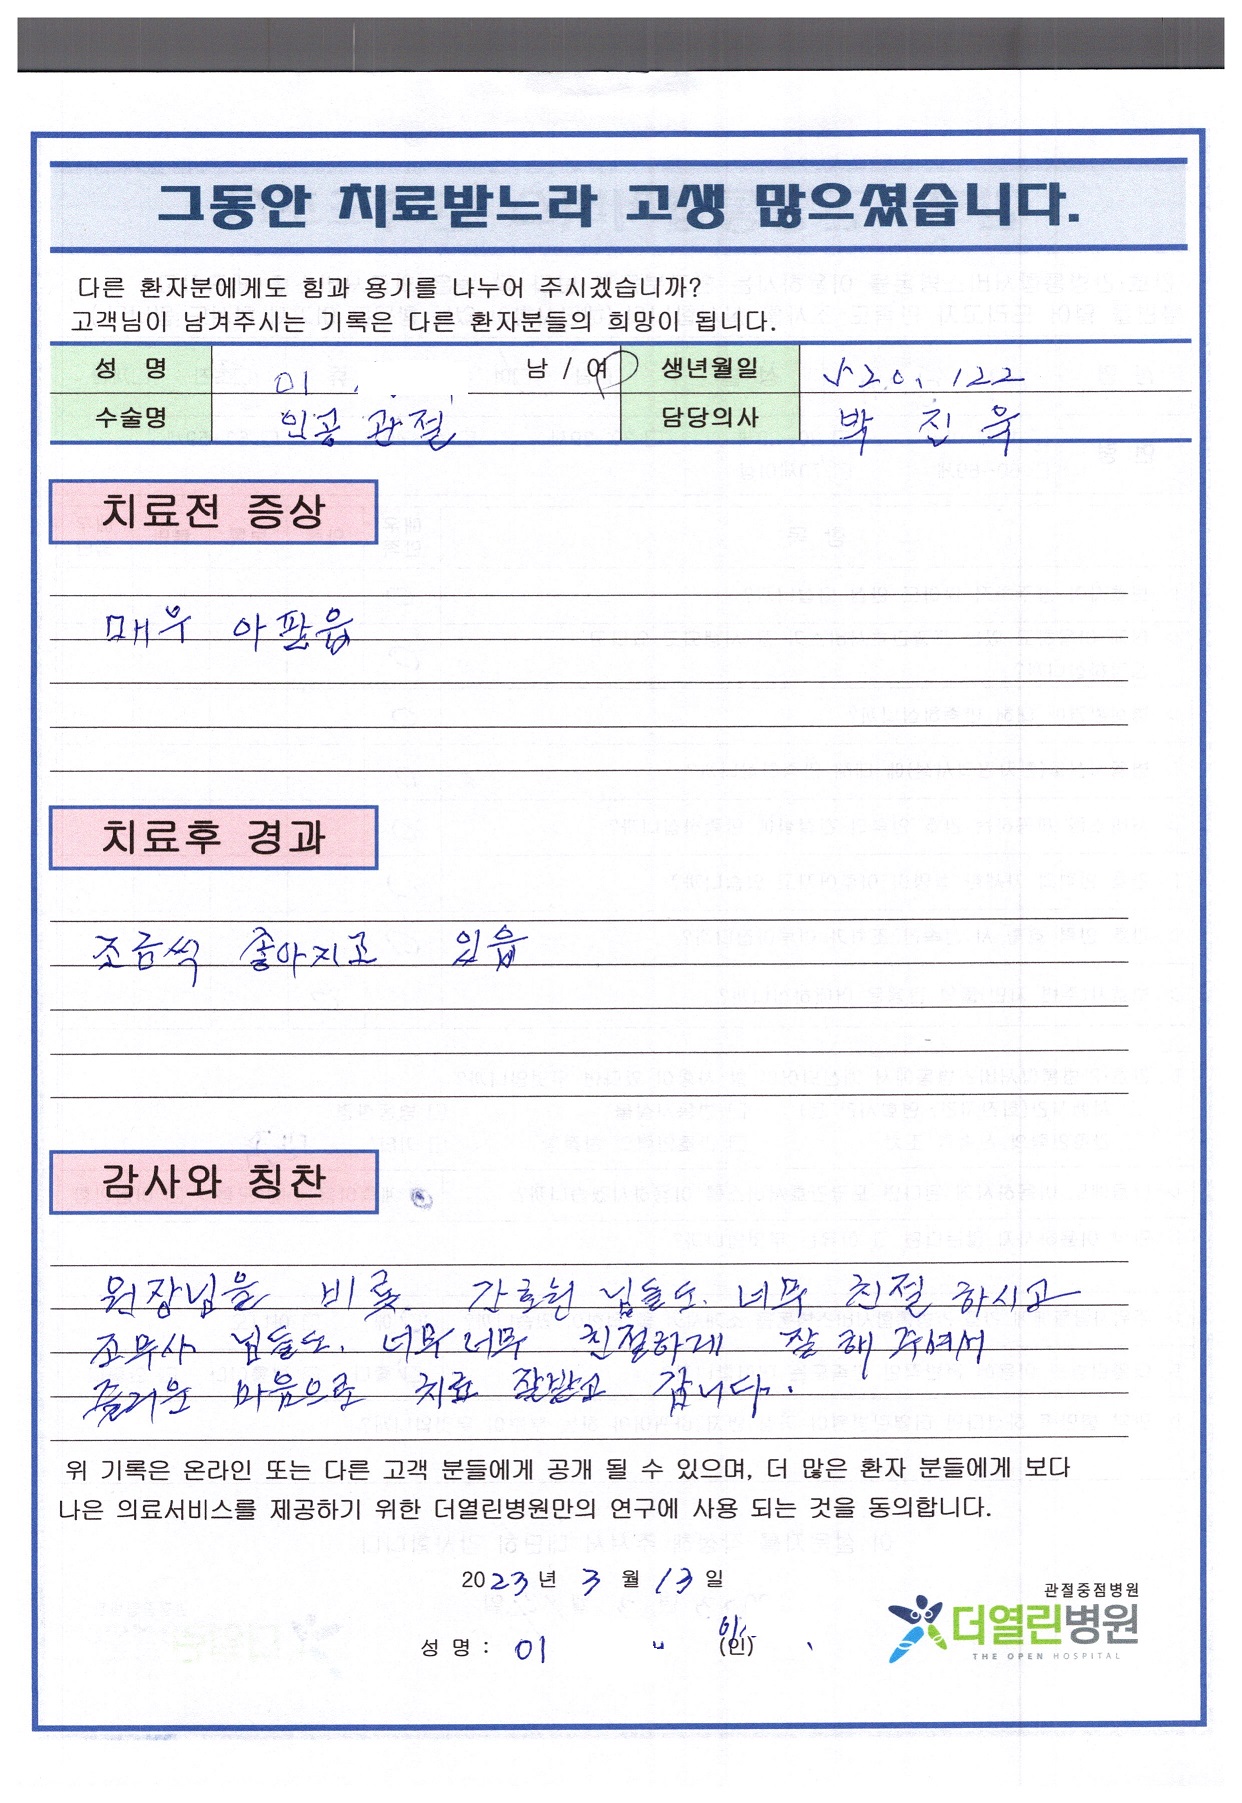 그동안 치료받느라 고생 많으셨습니다.
다른 환자분에게도 힘과 용기를 나누어 주시겠습니까?
고객님이 남겨주시는 기록은 다른 환자분들의 희망이 됩니다.
성 명 이 남 / 여 생년월일 520.122
수술명 인공관절 담당의사 박 진 욱
치료전 증상
매우 아판읍
치료후 경과
조금씩 좋아지고 있읍
감사와 칭찬
원장님을 비롯. 간호원 님들도. 너무 친절 하시고
조무사 님들도. 너무너무 친절하게 잘 해 주셔서
즐거운 마음으로 치료 잘받고 갑니다.
위 기록은 온라인 또는 다른 고객 분들에게 공개 될 수 있으며, 더 많은 환자 분들에게 보다
나은 의료서비스를 제공하기 위한 더열린병원만의 연구에 사용 되는 것을 동의합니다.
2023년 3 월 13 일
성 명 : 이 (인)
관절중점병원
더열린병원
THE OPEN HOSPITAL